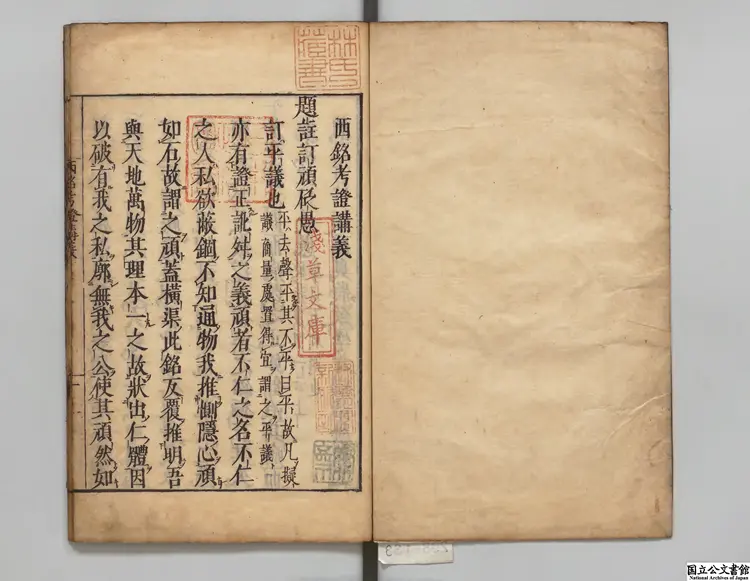 西銘考證講義
題註訂頑砭愚
訂平議也
平去聲平其不平曰平故凡擬
議商量處置得宜謂之平議
亦有證正訛舛之義頑者不仁之名不仁
之人私欲蔽錮不知通物我推惻隱心頑
如石故謂之頑蓋橫渠此銘反覆推明吾
與天地萬物其理本一之故狀出仁體因
以破有我之私廓無我之公使其頑然如
西銘考證講義
林氏藏書
淺草文庫
国立公文書館
National Archives of Japan